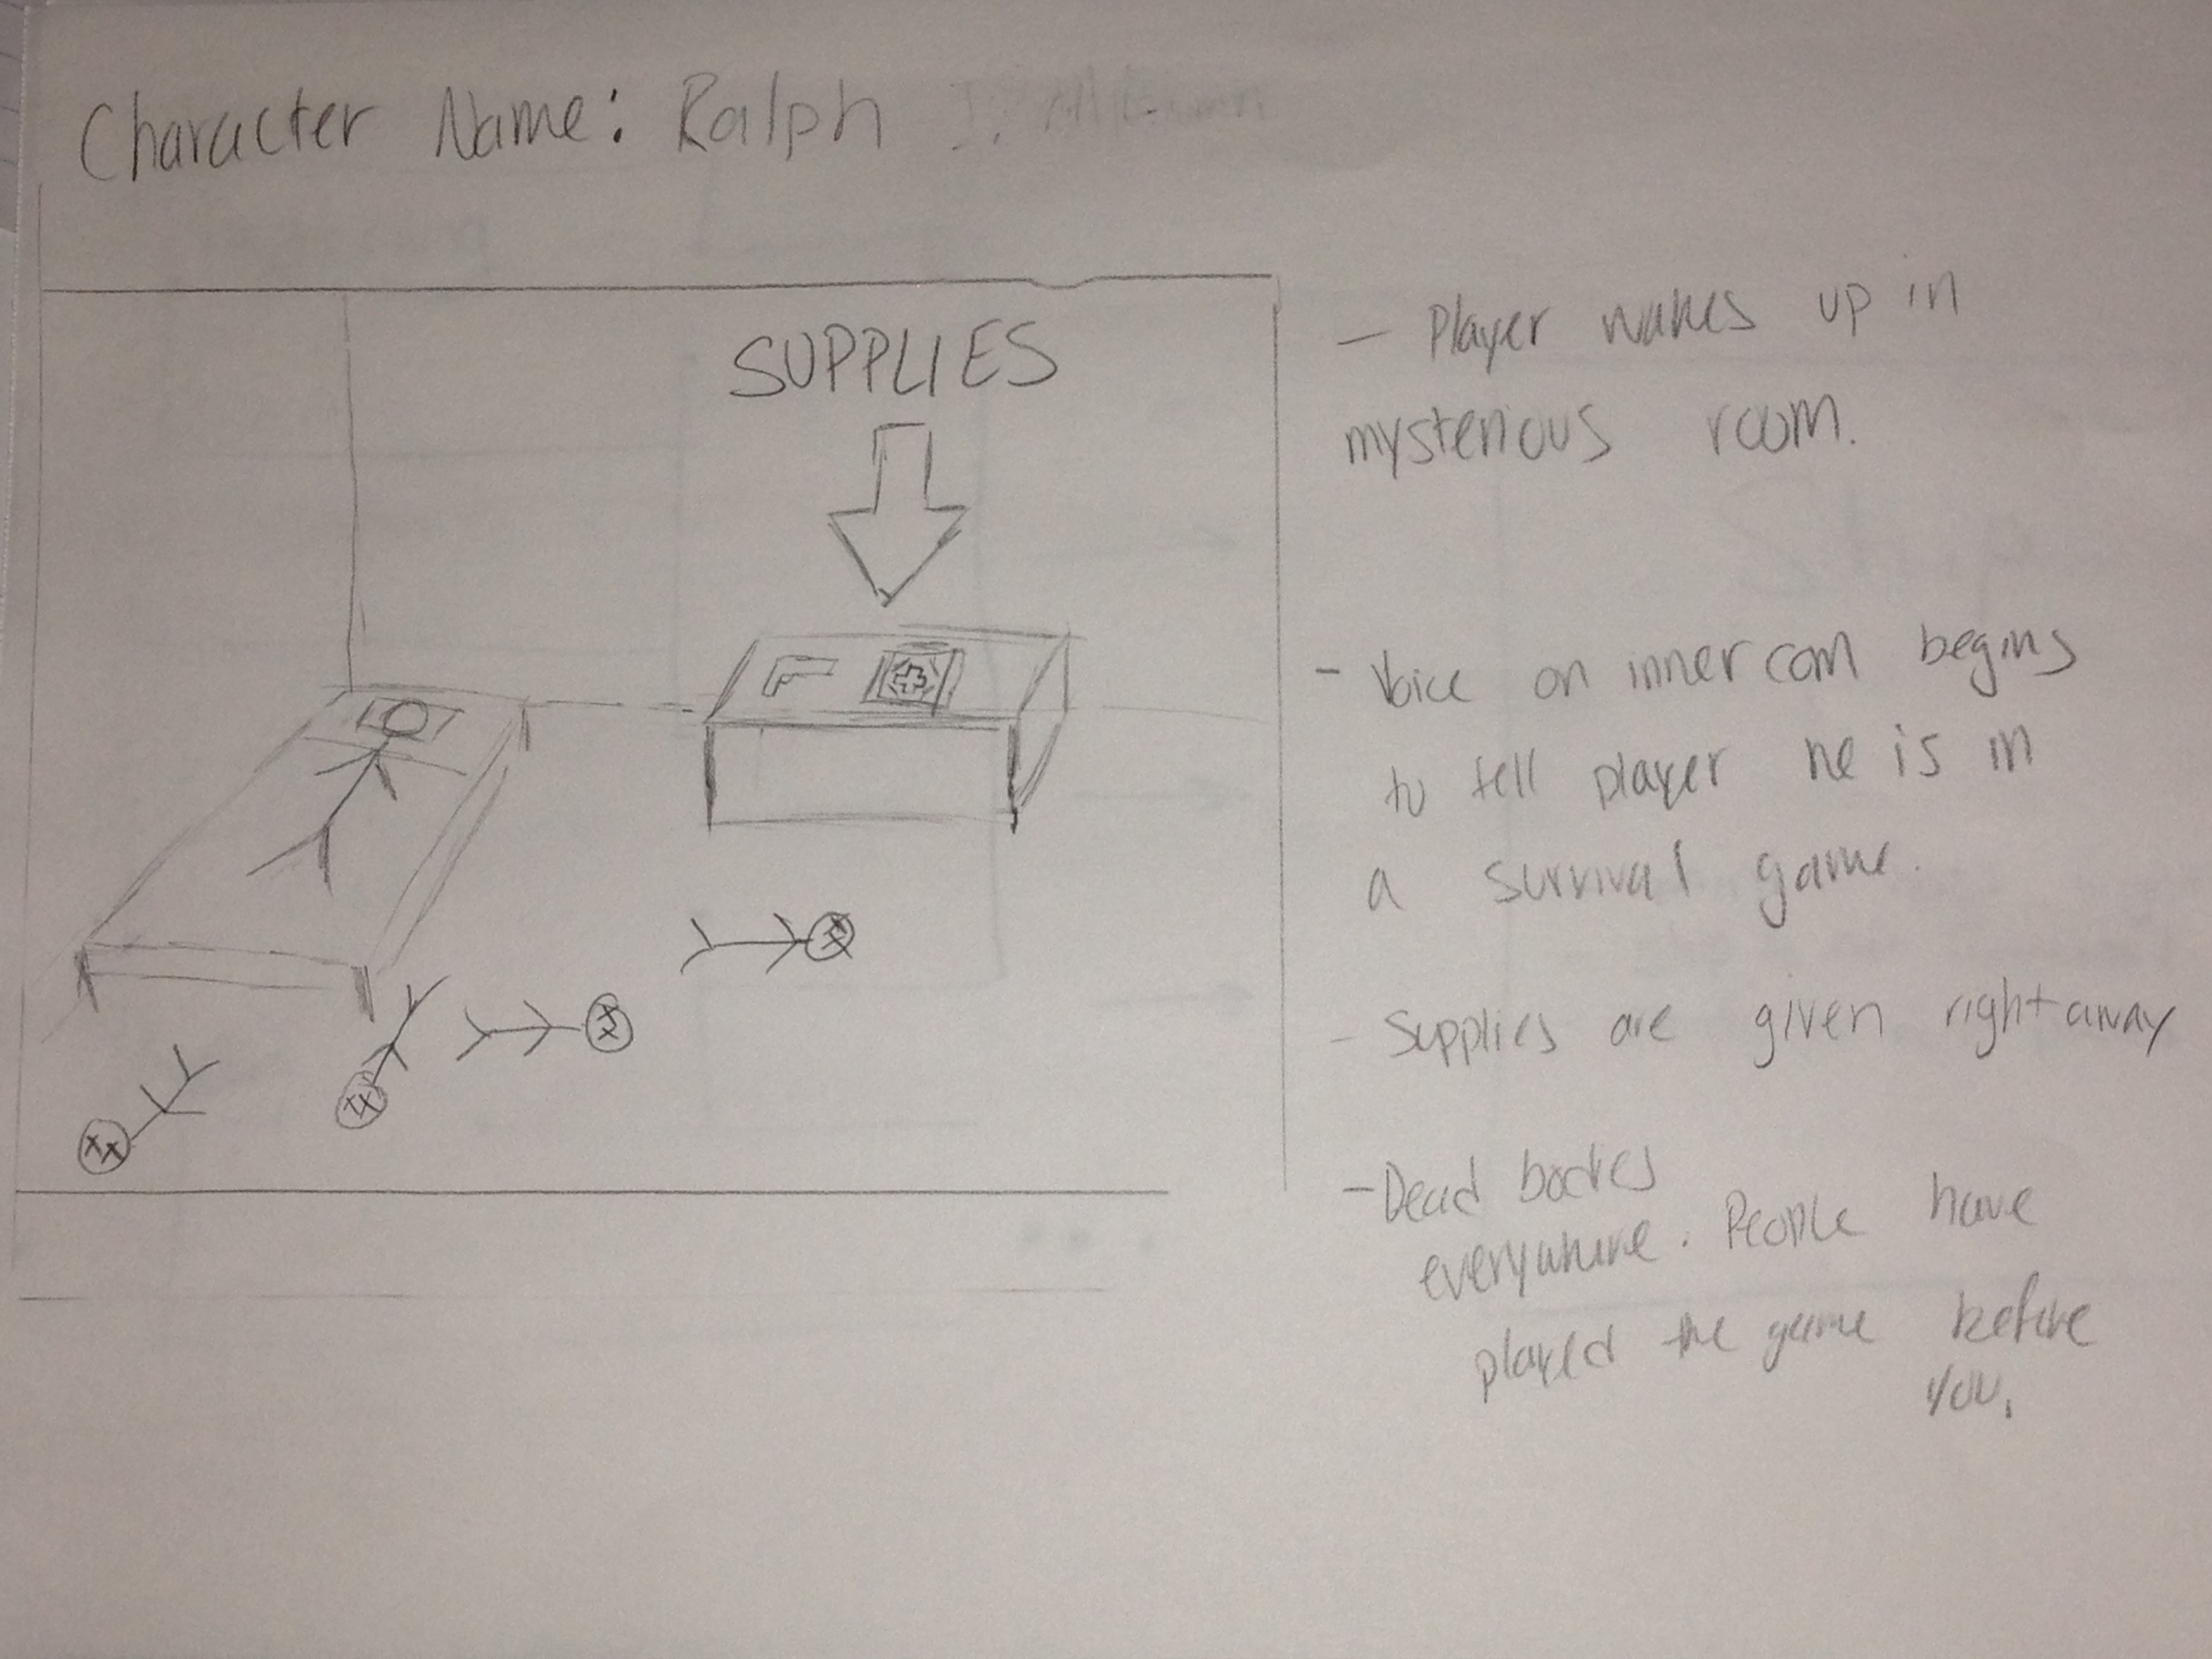 Character Name: Ralph
SUPPLIES
- Player wakes up in
mysterious room.
- Voice on innercom begins
to tell player he is in
a survival game.
- Supplies are given right away
- Dead bodies
everywhere. People have
played the game before
you.